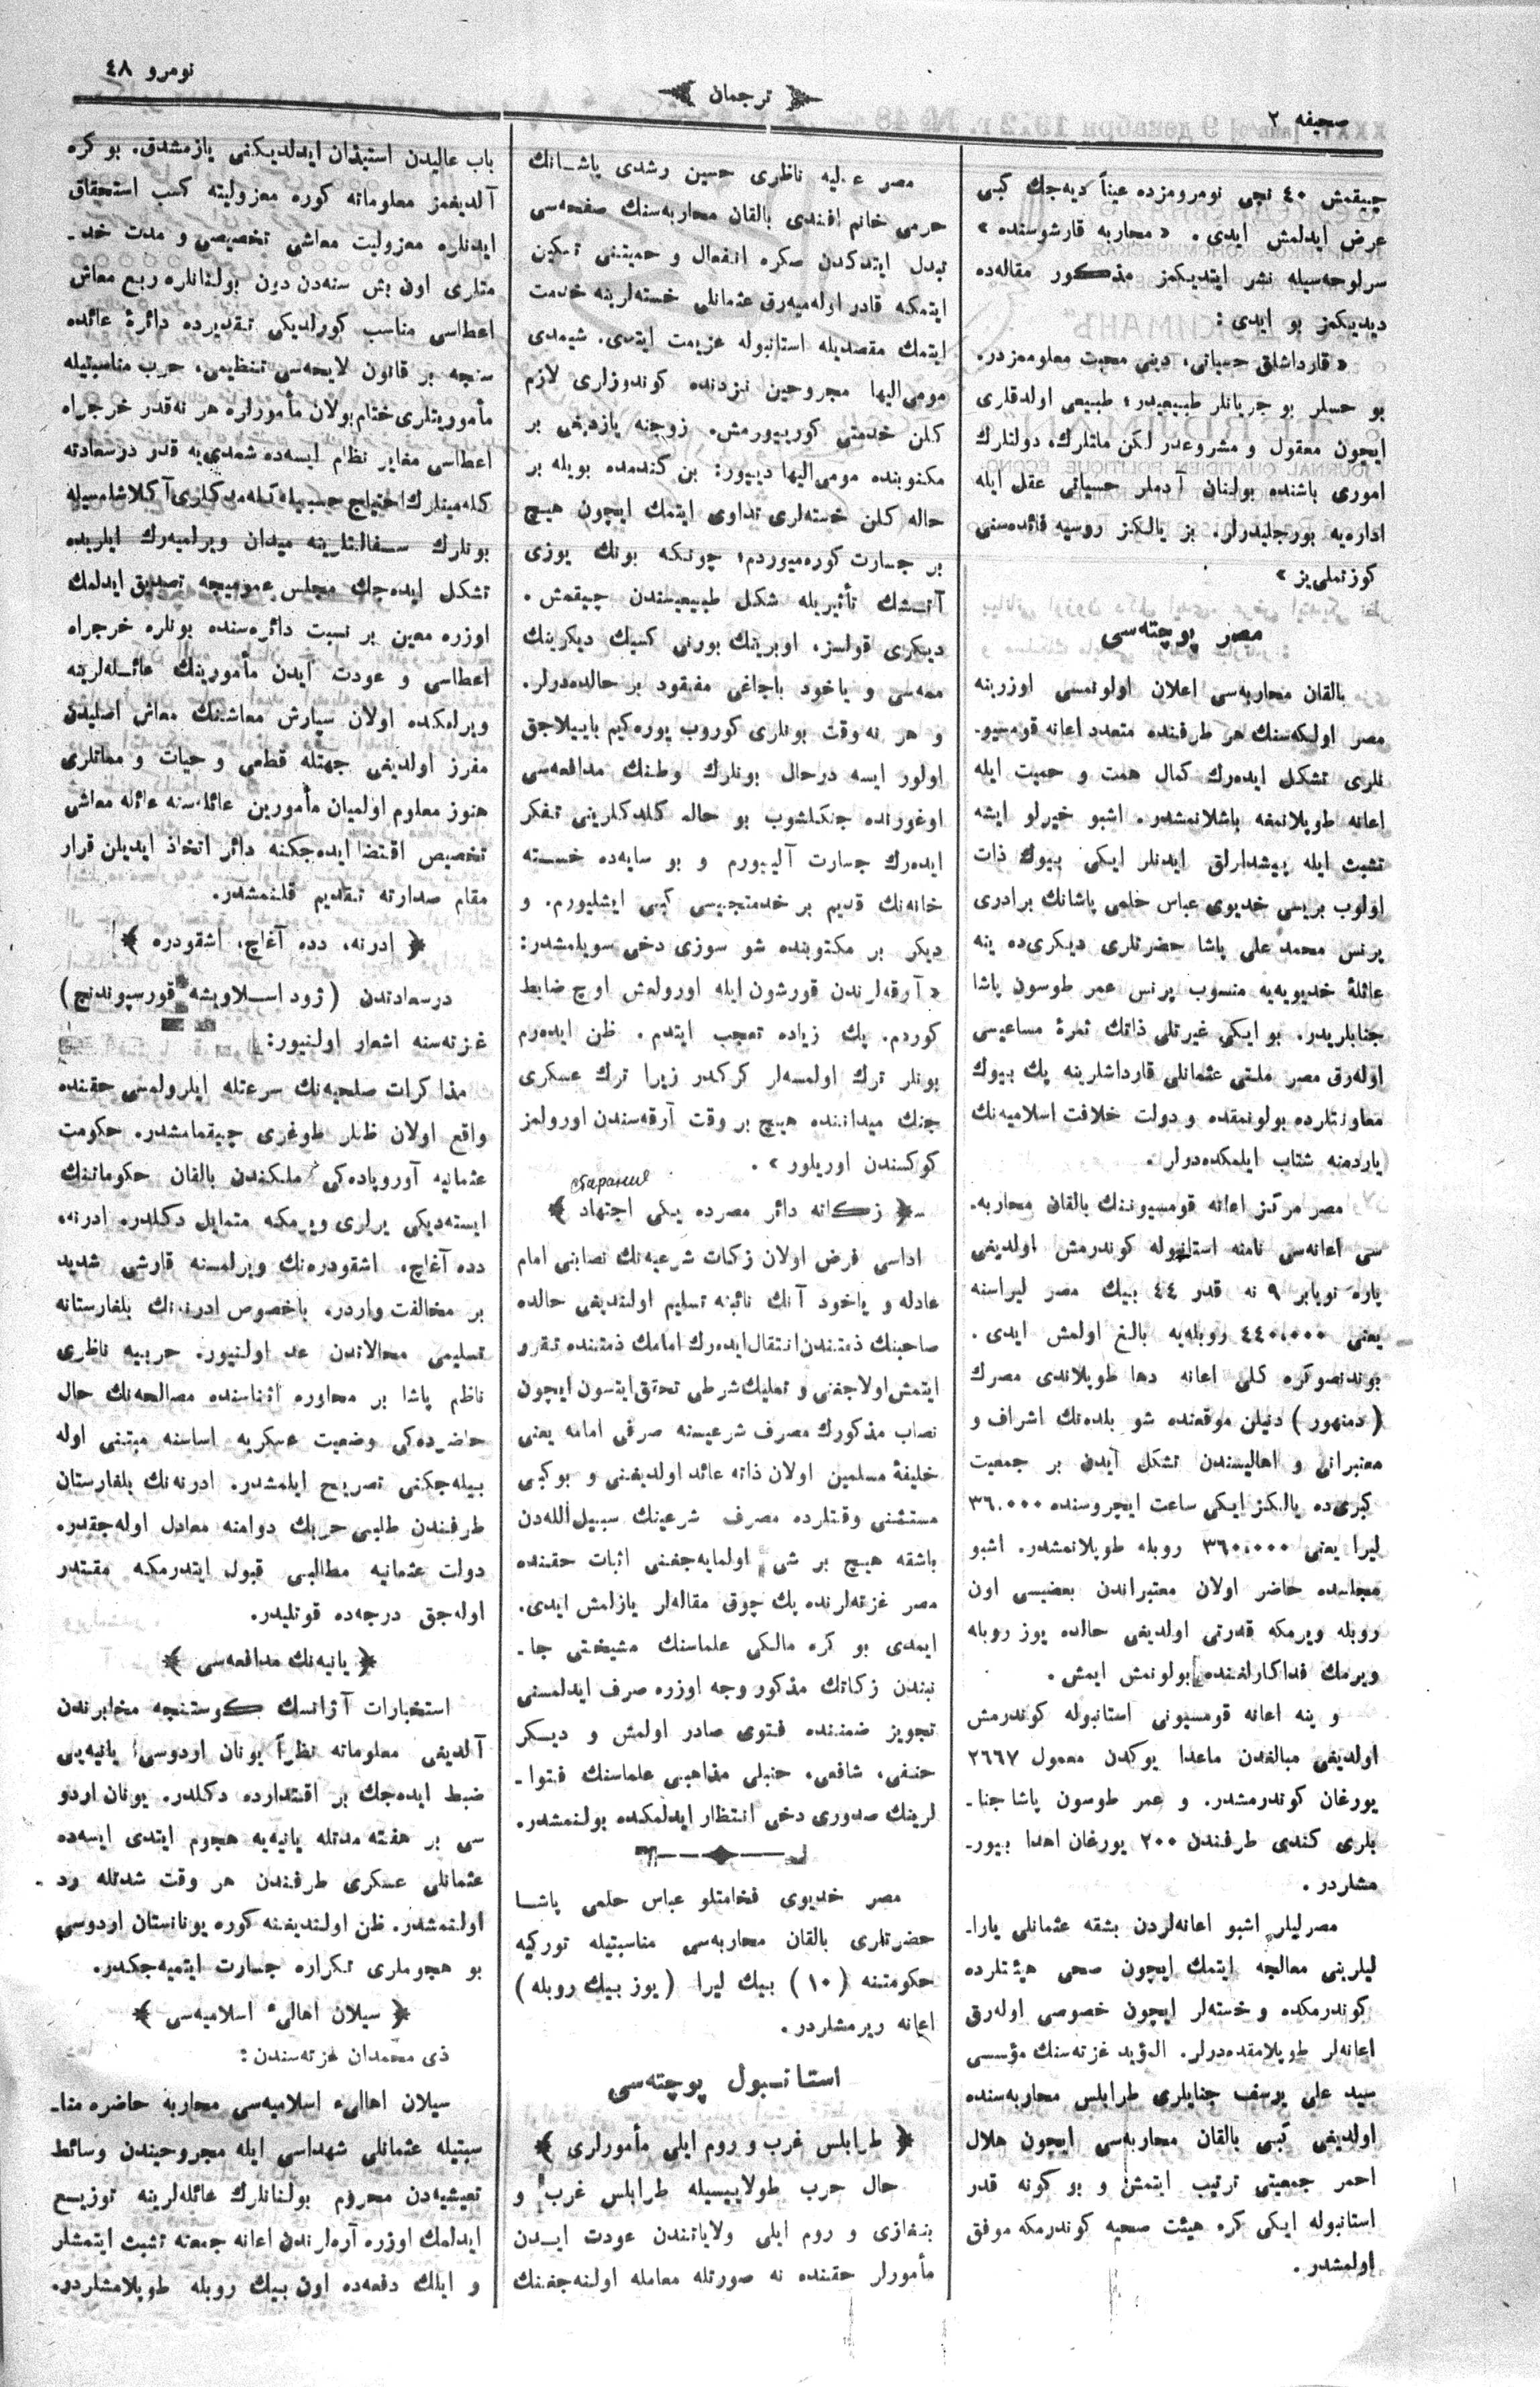 صحیفه ۲
ترجمان
نومرو ٤٨
چیقمش ٤٠ نجی نومرومزده عیناً دیه‌جك كبی
عرض ایدلمش ایدی. «محاربه قارشوسنده»
سرلوحه‌سیله نشر ایتدیكمز مذكور مقاله‌ده
دیدیكمز بو ایدی:
«قارداشلق حسیاتی، دینی محبت معلوممزدر.
بو حسلر بو جریانلر طبیعیدر؛ طبیعی اولدقلری
ایچون معقول و مشروعدر لكن ملتلرك، دولتلرك
اموری باشنده بولنان آدملر حسیاتی عقل ایله
اداره‌یه بورجلیدرلر. بز یالكز روسیه فائده‌سنی
كوزتملی‌یز»
مصر پوچته‌سی
بالقان محاربه‌سی اعلان اولونمسی اوزرینه
مصر اولكه‌سنك هر طرفنده متعدد اعانه قومسیو-
نلری تشكل ایده‌رك كمال همت و حمیت ایله
اعانه طوپلانمغه باشلانمشدر. اشبو خیرلو ایشه
تشبث ایله پیشدارلق ایدنلر ایكی بیوك ذات
اولوب بریسی خدیوی عباس حلمی پاشانك برادری
پرنس محمد علی پاشا حضرتلری دیكری‌ده ینه
عائلهٔ خدیویه‌یه منسوب پرنس عمر طوسون پاشا
جنابلریدر. بو ایكی غیرتلی ذاتك ثمرهٔ مساعیسی
اوله‌رق مصر ملتی عثمانلی قارداشلرینه پك بیوك
معاونتلرده بولونمقده و دولت خلافت اسلامیه‌نك
یاردمنه شتاب ایلمكده‌درلر.
مصر مركز اعانه قومسیوننك بالقان محاربه-
سی اعانه‌سی نامنه استانبوله كوندرمش اولدیغی
پاره نویابر ٩ نه قدر ٤٤ بیك مصر لیراسنه
یعنی ٤٤٠،٠٠٠ روبله‌یه بالغ اولمش ایدی.
بوندنصوكره كلی اعانه دها طوپلاندی مصرك
(دمنهور) دنیلن موقعنده شو بلده‌نك اشراف و
معتبرانی و اهالیسندن تشكل ایدن بر جمعیت
كبری‌ده یالكز ایكی ساعت ایچروسنده ٣٦.٠٠٠
لیرا یعنی ٣٦٠،٠٠٠ روبله طوپلانمشدر. اشبو
مجلسده حاضر اولان معتبراندن بعضیسی اون
روبله ویرمكه قدرتی اولدیغی حالده یوز روبله
ویرمك فداكارلغنده بولونمش ایمش.
و ینه اعانه قومسیونی استانبوله كوندرمش
اولدیغی مبالغدن ماعدا یوكدن معمول ٢٦٦٧
یورغان كوندرمشدر. و عمر طوسون پاشا جنا-
بلری كندی طرفندن ٢٠٠ یورغان اهدا بیور-
مشلردر.
مصرلیلر اشبو اعانه‌لردن بشقه عثمانلی یارا-
لیلرینی معالجه ایتمك ایچون صحی هیئتلرده
كوندرمكده و خسته‌لر ایچون خصوصی اوله‌رق
اعانه‌لر طوپلامقده‌درلر. المؤید غزته‌سنك مؤسسی
سید علی یوسف جنابلری طرابلس محاربه‌سنده
اولدیغی كبی بالقان محاربه‌سی ایچون هلال
احمر جمعیتی ترتیب ایتمش و بو كونه قدر
استانبوله ایكی كره هیئت صحیه كوندرمكه موفق
اولمشدر.
مصر عدلیه ناظری حسین رشدی پاشانك
حرمی خانم افندی بالقان محاربه‌سنك صفحه‌سی
تبدل ایتدكدن صكره انفعال و حمیتنی تسكین
ایتمكه قادر اوله‌میه‌رق عثمانلی خسته‌لرینه خدمت
ایتمك مقصدیله استانبوله عزیمت ایتدی. شیمدی
مومی‌الیها مجروحین نزدنده كوندوزلری لازم
كلن خدمتی كورییورمش. زوجنه یازدیغی بر
مكتوبنده مومی‌الیها دییور: بن كندمده بویله بر
حاله كلن خسته‌لری تداوی ایتمك ایچون هیچ
بر جسارت كوره‌میوردم؛ چونكه بونك یوزی
آتشك تأثیریله شكل طبیعیسندن چیقمش.
دیكری قولسز، اوبرینك بورنی كسیك دیكرینك
ممه‌سی و یاخود باجاغی مفقود بر حالده‌درلر.
و هر نه وقت بونلری كوروب یوره‌كیم باییلاجق
اولور ایسه درحال بونلرك وطنك مدافعه‌سی
اوغورنده جنكلشوب بو حاله كلدكلرینی تفكر
ایده‌رك جسارت آلییورم و بو سایه‌ده خسته
خانه‌نك قدیم بر خدمتجیسی كبی ایشلیورم. و
دیكر بر مكتوبنده شو سوزی دخی سویلمشدر:
«آرقه‌لرندن قورشون ایله اورولمش اوچ ضابط
كوردم. پك زیاده تعجب ایتدم. ظن ایده‌رم
بونلر ترك اولمسه‌لر كركدر زیرا ترك عسكری
جنك میداننده هیچ بر وقت آرقه‌سندن اورولمز
كوكسندن اوریلور».
старание
زكاته دائر مصرده یكی اجتهاد
اداسی فرض اولان زكات شرعیه‌نك نصابنی امام
عادله و یاخود آنك نائبنه تسلیم اولندیغی حالده
صاحبنك ذمتندن انتقال ایده‌رك امامك ذمتنده تقرر
ایتمش اولاجغنی و تملیك شرطی تحقق ایتسون ایچون
نصاب مذكورك مصرف شرعیسنه صرفی امامه یعنی
خلیفهٔ مسلمین اولان ذاته عائد اولدیغنی و بو كبی
مستثنی وقتلرده مصرف شرعینك سبیل‌الله‌دن
باشقه هیچ بر شی اولمایه‌جغنی اثبات حقنده
مصر غزته‌لرنده پك چوق مقاله‌لر یازلمش ایدی.
ایمدی بو كره مالكی علماسنك مشیختی جا-
نبندن زكاتك مذكور وجه اوزره صرف ایدلمسنی
تجویز ضمننده فتوی صادر اولمش و دیكر
حنفی، شافعی، حنبلی مذاهبی علماسنك فتوا-
لرینك صدوری دخی انتظار ایدلمكده بولنمشدر.
مصر خدیوی فخامتلو عباس حلمی پاشا
حضرتلری بالقان محاربه‌سی مناسبتیله توركیه
حكومتنه (١٠) بیك لیرا (یوز بیك روبله)
اعانه ویرمشلردر.
استانبول پوچته‌سی
طرابلس غرب و روم ایلی مأمورلری
حال حرب طولاییسیله طرابلس غرب و
بنغازی و روم ایلی ولایاتندن عودت ایدن
مأمورلر حقنده نه صورتله معامله اولنه‌جغنك
باب عالیدن استیذان ایدلدیكنی یازمشدق. بو كره
آلدیغمز معلوماته كوره معزولیته كسب استحقاق
ایدنلره معزولیت معاشی تخصیصی و مدت خد-
متلری اون بش سنه‌دن دون بولنانلره ربع معاش
اعطاسی مناسب كورلدیكی تقدیرده دائرهٔ عائده
سنجه بر قانون لایحه‌سی تنظیمی، حرب مناسبتیله
مأموریتلری ختام بولان مأمورلره هر نه‌قدر خرجراه
اعطاسی مغایر نظام ایسه‌ده شمدی‌یه قدر درسعادته
كله‌مینلرك احتیاج حسبیله كله‌مدكلری آكلاشلمسیله
بونلرك سفالتلرینه میدان ویرلمیه‌رك ایلریده
تشكل ایده‌جك مجلس عمومیجه تصدیق ایدلمك
اوزره معین بر نسبت دائره‌سنده بونلره خرجراه
اعطاسی و عودت ایدن مأمورینك عائله‌لرینه
ویرلمكده اولان سپارش معاشنك معاش اصلیدن
مفرز اولدیغی جهتله قطعی و حیات و مماتلری
هنوز معلوم اولمیان مأمورین عائله‌سنه عائله معاشی
تخصیص اقتضا ایده‌جكنه دائر اتخاذ ایدیلن قرار
مقام صدارته تقدیم قلنمشدر.
ادرنه، دده آغاچ، اشقودره
درسعادتدن (ژود اسلاویشه قورسپوندنچ)
غزته‌سنه اشعار اولنیور:
مذاكرات صلحیه‌نك سرعتله ایلرولمسی حقنده
واقع اولان ظنلر طوغری چیقمامشدر. حكومت
عثمانیه آوروپاده‌كی ملكندن بالقان حكوماتنك
ایسته‌دیكی یرلری ویرمكه متمایل دكلدر. ادرنه،
دده آغاچ، اشقودره‌نك ویرلمسنه قارشی شدید
بر مخالفت واردر. باخصوص ادرنه‌نك بلغارستانه
تسلیمی محالاتدن عد اولنیور. حربیه ناظری
ناظم پاشا بر محاوره اثناسنده مصالحه‌نك حال
حاضرده‌كی وضعیت عسكریه اساسنه مبتنی اوله
بیله‌جكنی تصریح ایلمشدر. ادرنه‌نك بلغارستان
طرفندن طلبی حربك دوامنه معادل اوله‌جقدر.
دولت عثمانیه مطالبی قبول ایتدرمكه مقتدر
اوله‌جق درجه‌ده قوتلیدر.
یانیه‌نك مدافعه‌سی
استخبارات آژانسك كوستنجه مخابرندن
آلدیغی معلوماته نظراً یونان اردوسی یانیه‌یی
ضبط ایده‌جك بر اقتدارده دكلدر. یونان اردو
سی بر هفته مدتله یانیه‌یه هجوم ایتدی ایسه‌ده
عثمانلی عسكری طرفندن هر وقت شدتله رد
اولنمشدر. ظن اولندیغنه كوره یونانستان اردوسی
بو هجوملری تكراره جسارت ایتمیه‌جكدر.
سیلان اهالیٔ اسلامیه‌سی
ذی محمدان غزته‌سندن:
سیلان اهالیء اسلامیه‌سی محاربهٔ حاضره منا-
سبتیله عثمانلی شهداسی ایله مجروحیندن وسائط
تعیشیه‌دن محروم بولنانلرك عائله‌لرینه توزیع
ایدلمك اوزره آره‌لرندن اعانه جمعنه تشبث ایتمشلر
و ایلك دفعه‌ده اون بیك روبله طوپلامشلردر.